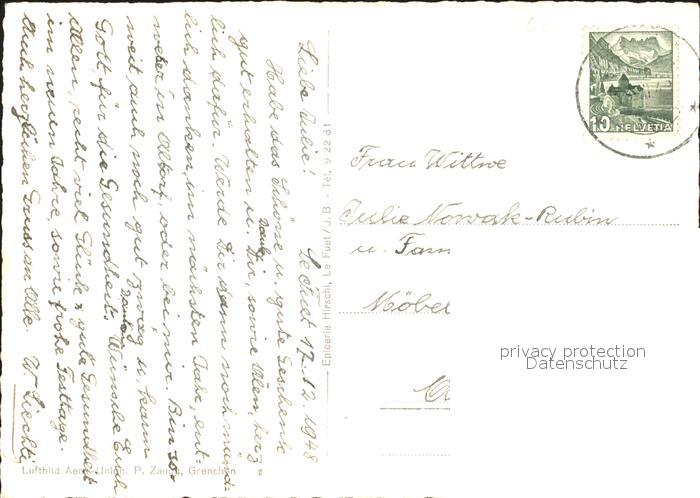 Le Fuet 17.12.1948
Liebe Julie!
Habe das Schöne u. gute Geschenk
gut erhalten u. Dir, sowie Allen, herz-
Dank
lich dafür. Werde Dir dann noch münd-
lich danken im nächsten Jahr, ent-
weder in Altdorf, oder bei mir. Bin so-
weit auch noch gut zwäg u. kann
Gott für die Gesundheit
danken
Wünsche Euch
Allen, recht viel Glück & gute Gesundheit
im neuen Jahre, sowie frohe Festtage.
Auch herzlichen Gruss an Alle. W. Liechti
Luftbild Aero-Union, P. Zaugg, Grenchen
Epicerie Hirschi, Le Fuet / J. B. - Tél. 9 22 61
10 HELVETIA
Frau Wittwe
Julie Nowak-Rubin
u. Fam
Möbel
privacy protection
Datenschutz